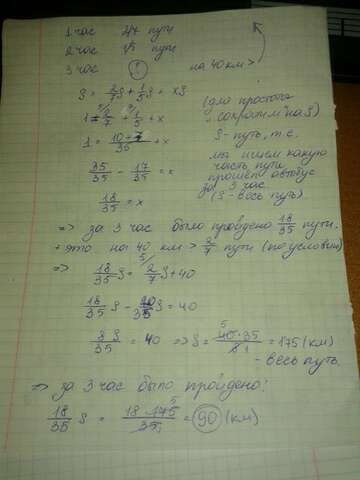 1 час 2/7 пути
2 час 1/5 пути
3 час ? на 40 км >
S = 2/7 S + 1/5 S + xS
1 = 2/7 + 1/5 + x
(для простоты
сократим на S)
1 = 10+7/35 + x
S - путь, т.е.
мы ищем какую
часть пути
прошел автобус
за 3 час.
(S - весь путь)
35/35 - 17/35 = x
18/35 = x
=> за 3 час было пройдено 18/35 пути.
это на 40 км > 2/7 пути (по условию)
=> 18/35 S = 2/7 S + 40
18/35 S - 10/35 S = 40
8S/35 = 40 => S = 40·35/8 = 175 (км)
- весь путь.
=> за 3 час было пройдено:
18/35 S = 18·175/35 = 90 (км)